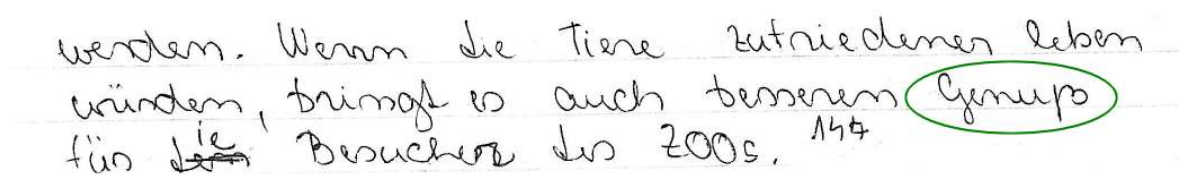 werden. Wenn die Tiere zufriedener leben
würden, bringt es auch besseren Genuß
für die Besucher des ZOOs. 147